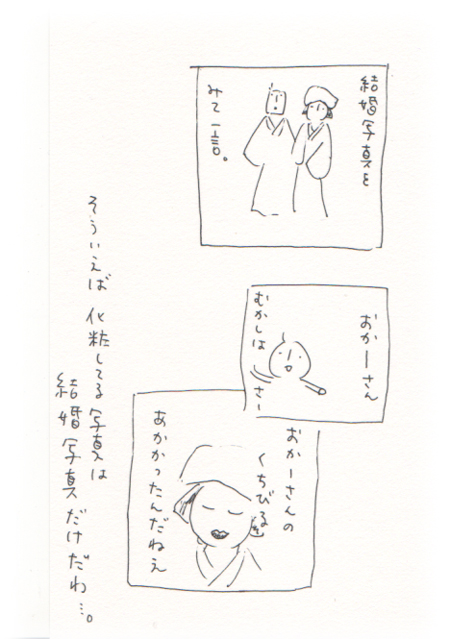 結婚写真を
みて一言。
おかーさん
むかしは
さー
おかーさんの
くちびるぞ
あかかったんだねえ
そういえば 化粧してる写真は
結婚写真だけだわ…。